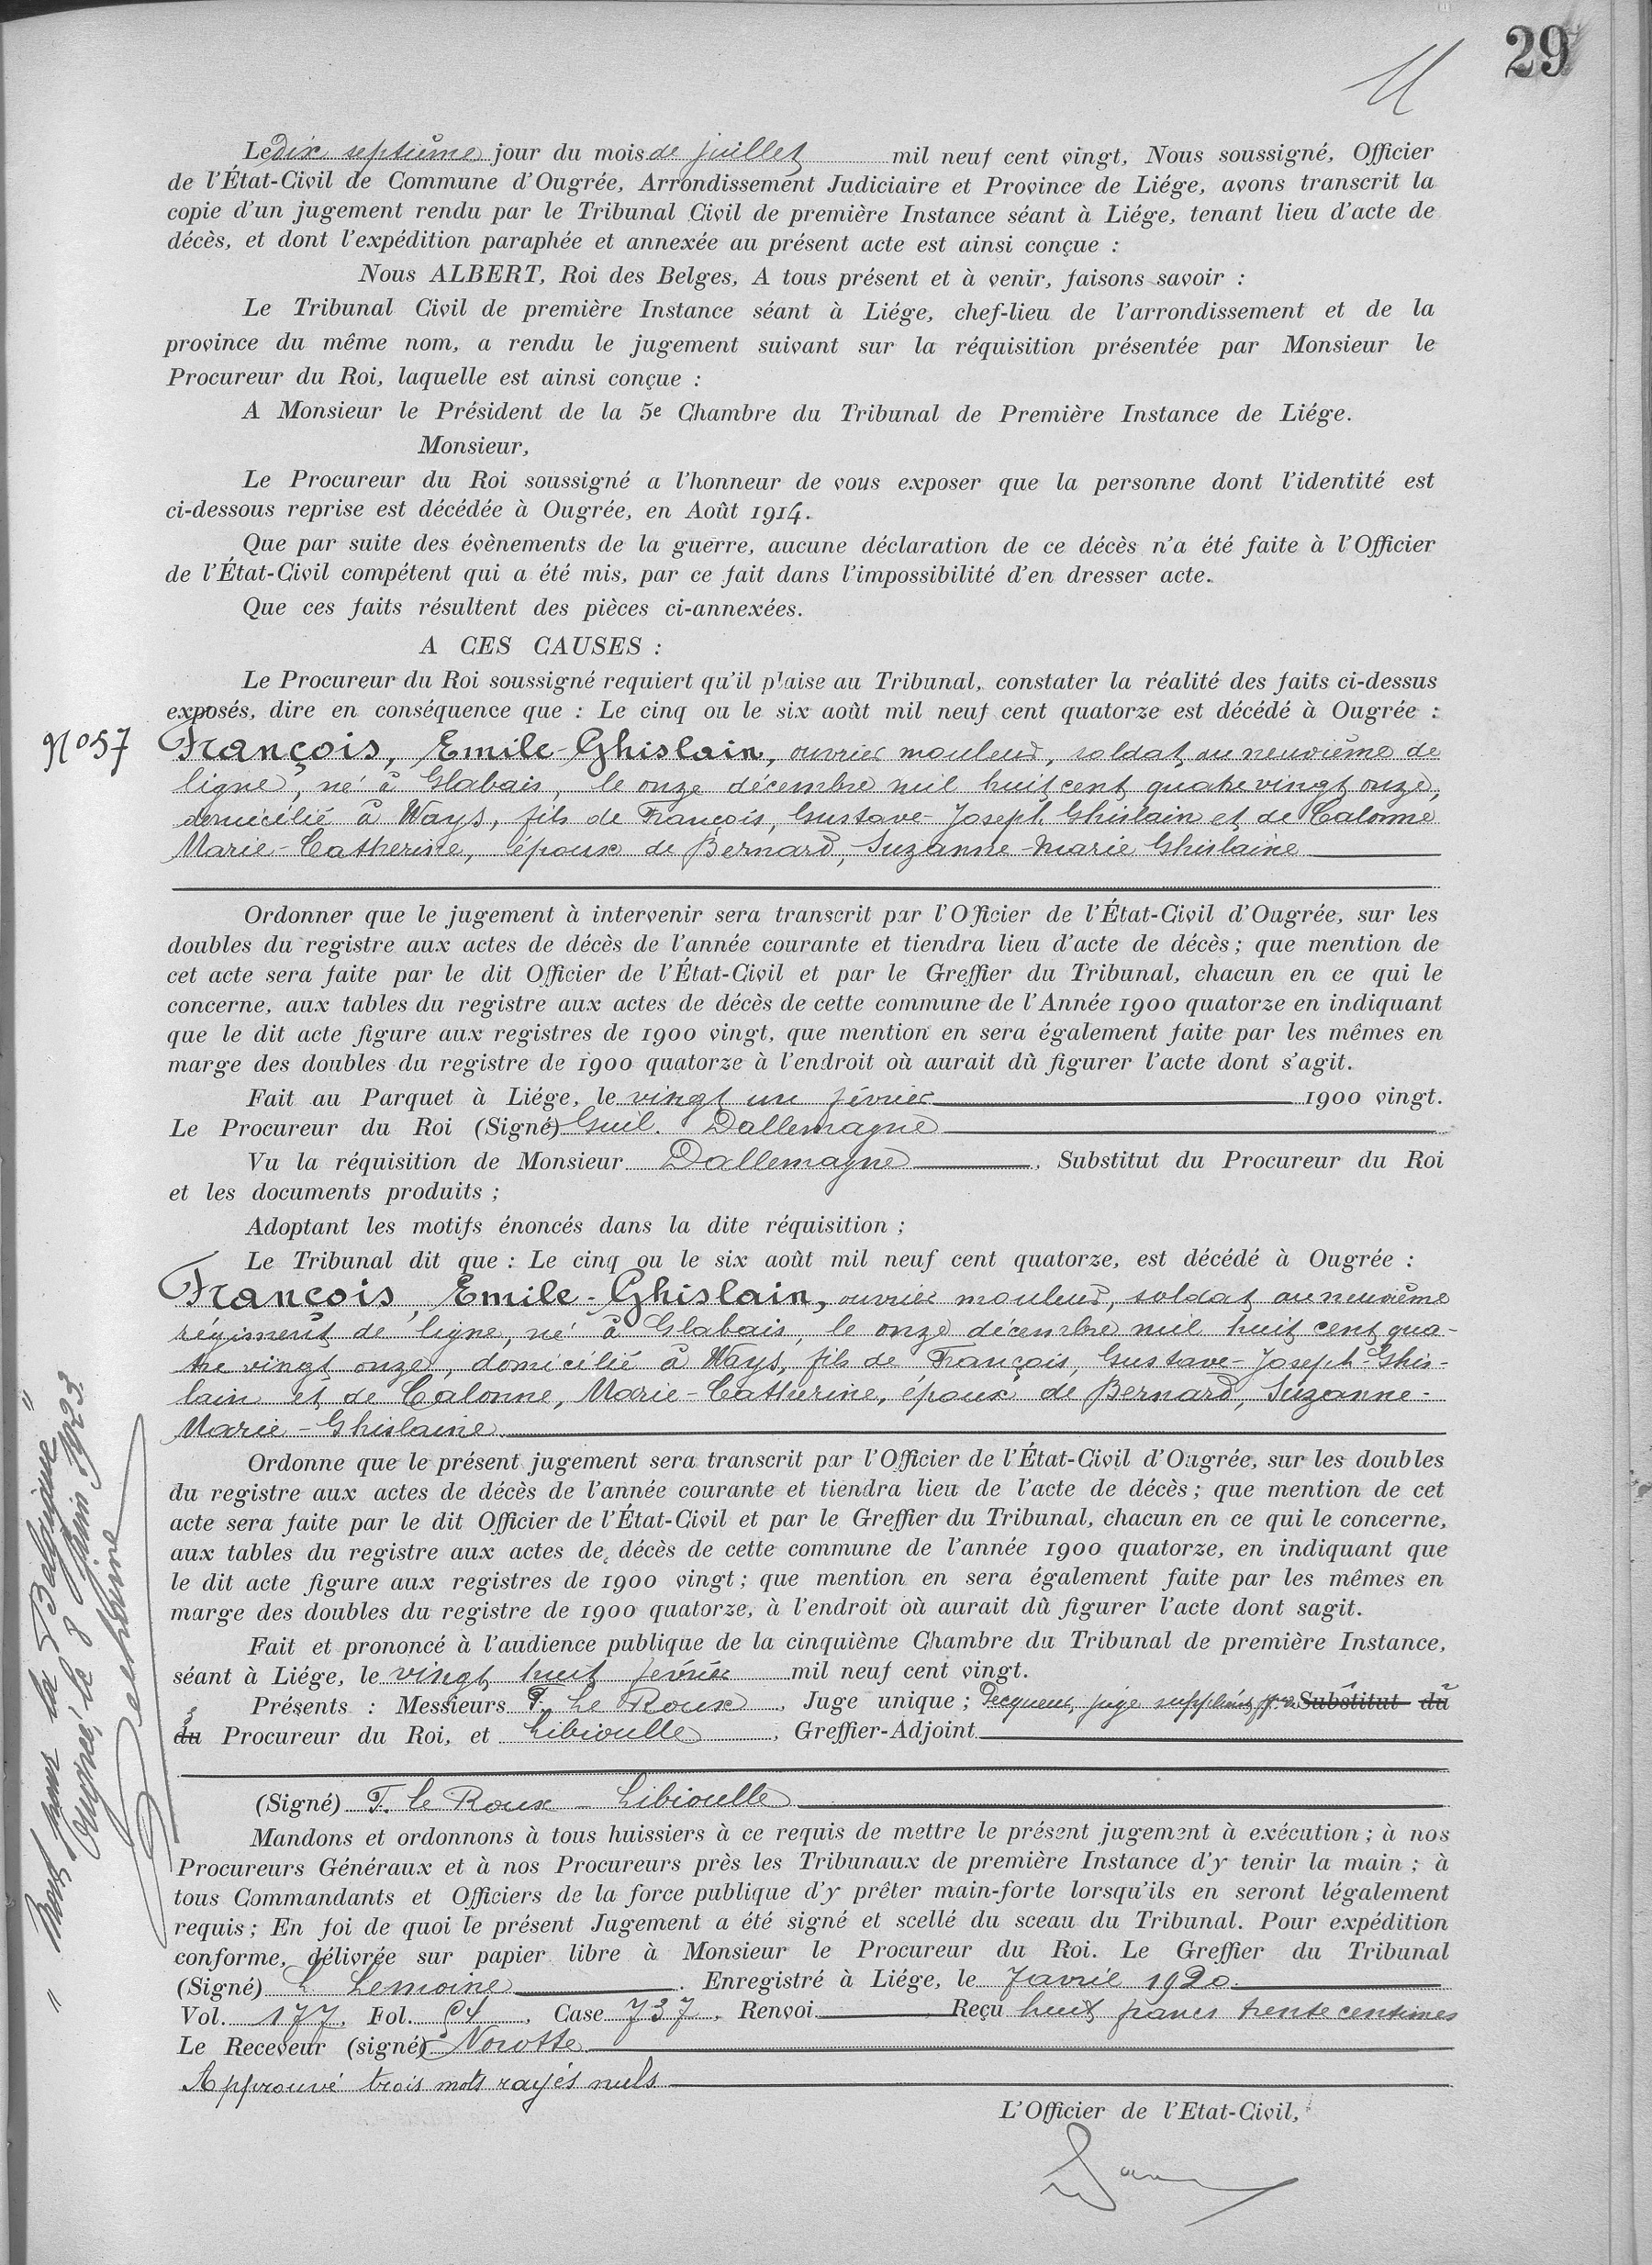 29
Le dix septième jour du mois de juillet mil neuf cent vingt, Nous soussigné, Officier
de l'État-Civil de Commune d'Ougrée, Arrondissement Judiciaire et Province de Liége, avons transcrit la
copie d'un jugement rendu par le Tribunal Civil de première Instance séant à Liége, tenant lieu d'acte de
décès, et dont l'expédition paraphée et annexée au présent acte est ainsi conçue :
Nous ALBERT, Roi des Belges, A tous présent et à venir, faisons savoir :
Le Tribunal Civil de première Instance séant à Liége, chef-lieu de l'arrondissement et de la
province du même nom, a rendu le jugement suivant sur la réquisition présentée par Monsieur le
Procureur du Roi, laquelle est ainsi conçue :
A Monsieur le Président de la 5e Chambre du Tribunal de Première Instance de Liége.
Monsieur,
Le Procureur du Roi soussigné a l'honneur de vous exposer que la personne dont l'identité est
ci-dessous reprise est décédée à Ougrée, en Août 1914.
Que par suite des évènements de la guerre, aucune déclaration de ce décès n'a été faite à l'Officier
de l'État-Civil compétent qui a été mis, par ce fait dans l'impossibilité d'en dresser acte.
Que ces faits résultent des pièces ci-annexées.
A CES CAUSES :
Le Procureur du Roi soussigné requiert qu'il plaise au Tribunal, constater la réalité des faits ci-dessus
exposés, dire en conséquence que : Le cinq ou le six août mil neuf cent quatorze est décédé à Ougrée :
No 57 François, Emile-Ghislain, ouvrier mouleur, soldat au neuvième de
ligne, né à Glabais, le onze décembre mil huit cent quatre vingt onze,
domicilié à Ways, fils de François, Gustave-Joseph Ghislain et de Calonne
Marie-Catherine, époux de Bernard, Suzanne-Marie Ghislaine
Ordonner que le jugement à intervenir sera transcrit par l'Officier de l'État-Civil d'Ougrée, sur les
doubles du registre aux actes de décès de l'année courante et tiendra lieu d'acte de décès ; que mention de
cet acte sera faite par le dit Officier de l'État-Civil et par le Greffier du Tribunal, chacun en ce qui le
concerne, aux tables du registre aux actes de décès de cette commune de l'Année 1900 quatorze en indiquant
que le dit acte figure aux registres de 1900 vingt, que mention en sera également faite par les mêmes en
marge des doubles du registre de 1900 quatorze à l'endroit où aurait dû figurer l'acte dont s'agit.
Fait au Parquet à Liége, le vingt un février 1900 vingt.
Le Procureur du Roi (Signé) Guil. Dallemagne
Vu la réquisition de Monsieur Dallemagne, Substitut du Procureur du Roi
et les documents produits ;
Adoptant les motifs énoncés dans la dite réquisition ;
Le Tribunal dit que : Le cinq ou le six août mil neuf cent quatorze, est décédé à Ougrée :
François, Emile-Ghislain, ouvrier mouleur, soldat au neuvième
régiment de ligne, né à Glabais, le onze décembre mil huit cent qua-
tre vingt onze, domicilié à Ways, fils de François, Gustave-Joseph-Ghis-
lain et de Calonne, Marie-Catherine, époux de Bernard, Suzanne-
Marie-Ghislaine
Ordonne que le présent jugement sera transcrit par l'Officier de l'État-Civil d'Ougrée, sur les doubles
du registre aux actes de décès de l'année courante et tiendra lieu de l'acte de décès ; que mention de cet
acte sera faite par le dit Officier de l'État-Civil et par le Greffier du Tribunal, chacun en ce qui le concerne,
aux tables du registre aux actes de décès de cette commune de l'année 1900 quatorze, en indiquant que
le dit acte figure aux registres de 1900 vingt ; que mention en sera également faite par les mêmes en
marge des doubles du registre de 1900 quatorze, à l'endroit où aurait dû figurer l'acte dont sagit.
Fait et prononcé à l'audience publique de la cinquième Chambre du Tribunal de première Instance,
séant à Liége, le vingt huit février mil neuf cent vingt.
Présents : Messieurs T. Le Roux, Juge unique ; juge suppléant Substitut du
du Procureur du Roi, et Libioulle, Greffier-Adjoint
(Signé) T. le Roux - Libioulle
Mandons et ordonnons à tous huissiers à ce requis de mettre le présent jugement à exécution ; à nos
Procureurs Généraux et à nos Procureurs près les Tribunaux de première Instance d'y tenir la main ; à
tous Commandants et Officiers de la force publique d'y prêter main-forte lorsqu'ils en seront légalement
requis ; En foi de quoi le présent Jugement a été signé et scellé du sceau du Tribunal. Pour expédition
conforme, délivrée sur papier libre à Monsieur le Procureur du Roi. Le Greffier du Tribunal
(Signé) L. Lemoine. Enregistré à Liége, le 7 avril 1920.
Vol. 177, Fol. 94, Case 737, Renvoi Reçu huit francs trente centimes
Le Receveur (signé) Nowotte
Approuvé trois mots rayés nuls
L'Officier de l'Etat-Civil,
"Mort pour la Belgique"
Ougrée, le 8 juin 1923